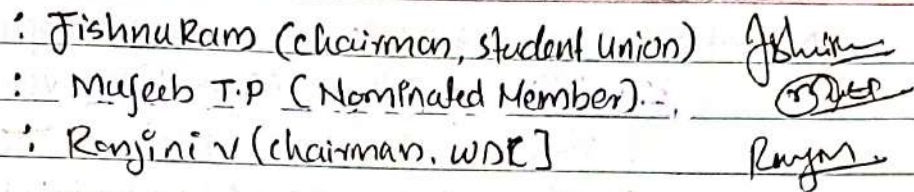 : Jishnu Ram (Chairman, student Union)
: Mujeeb T.P (Nominated Member).
: Ranjini V (Chairman. WDC]